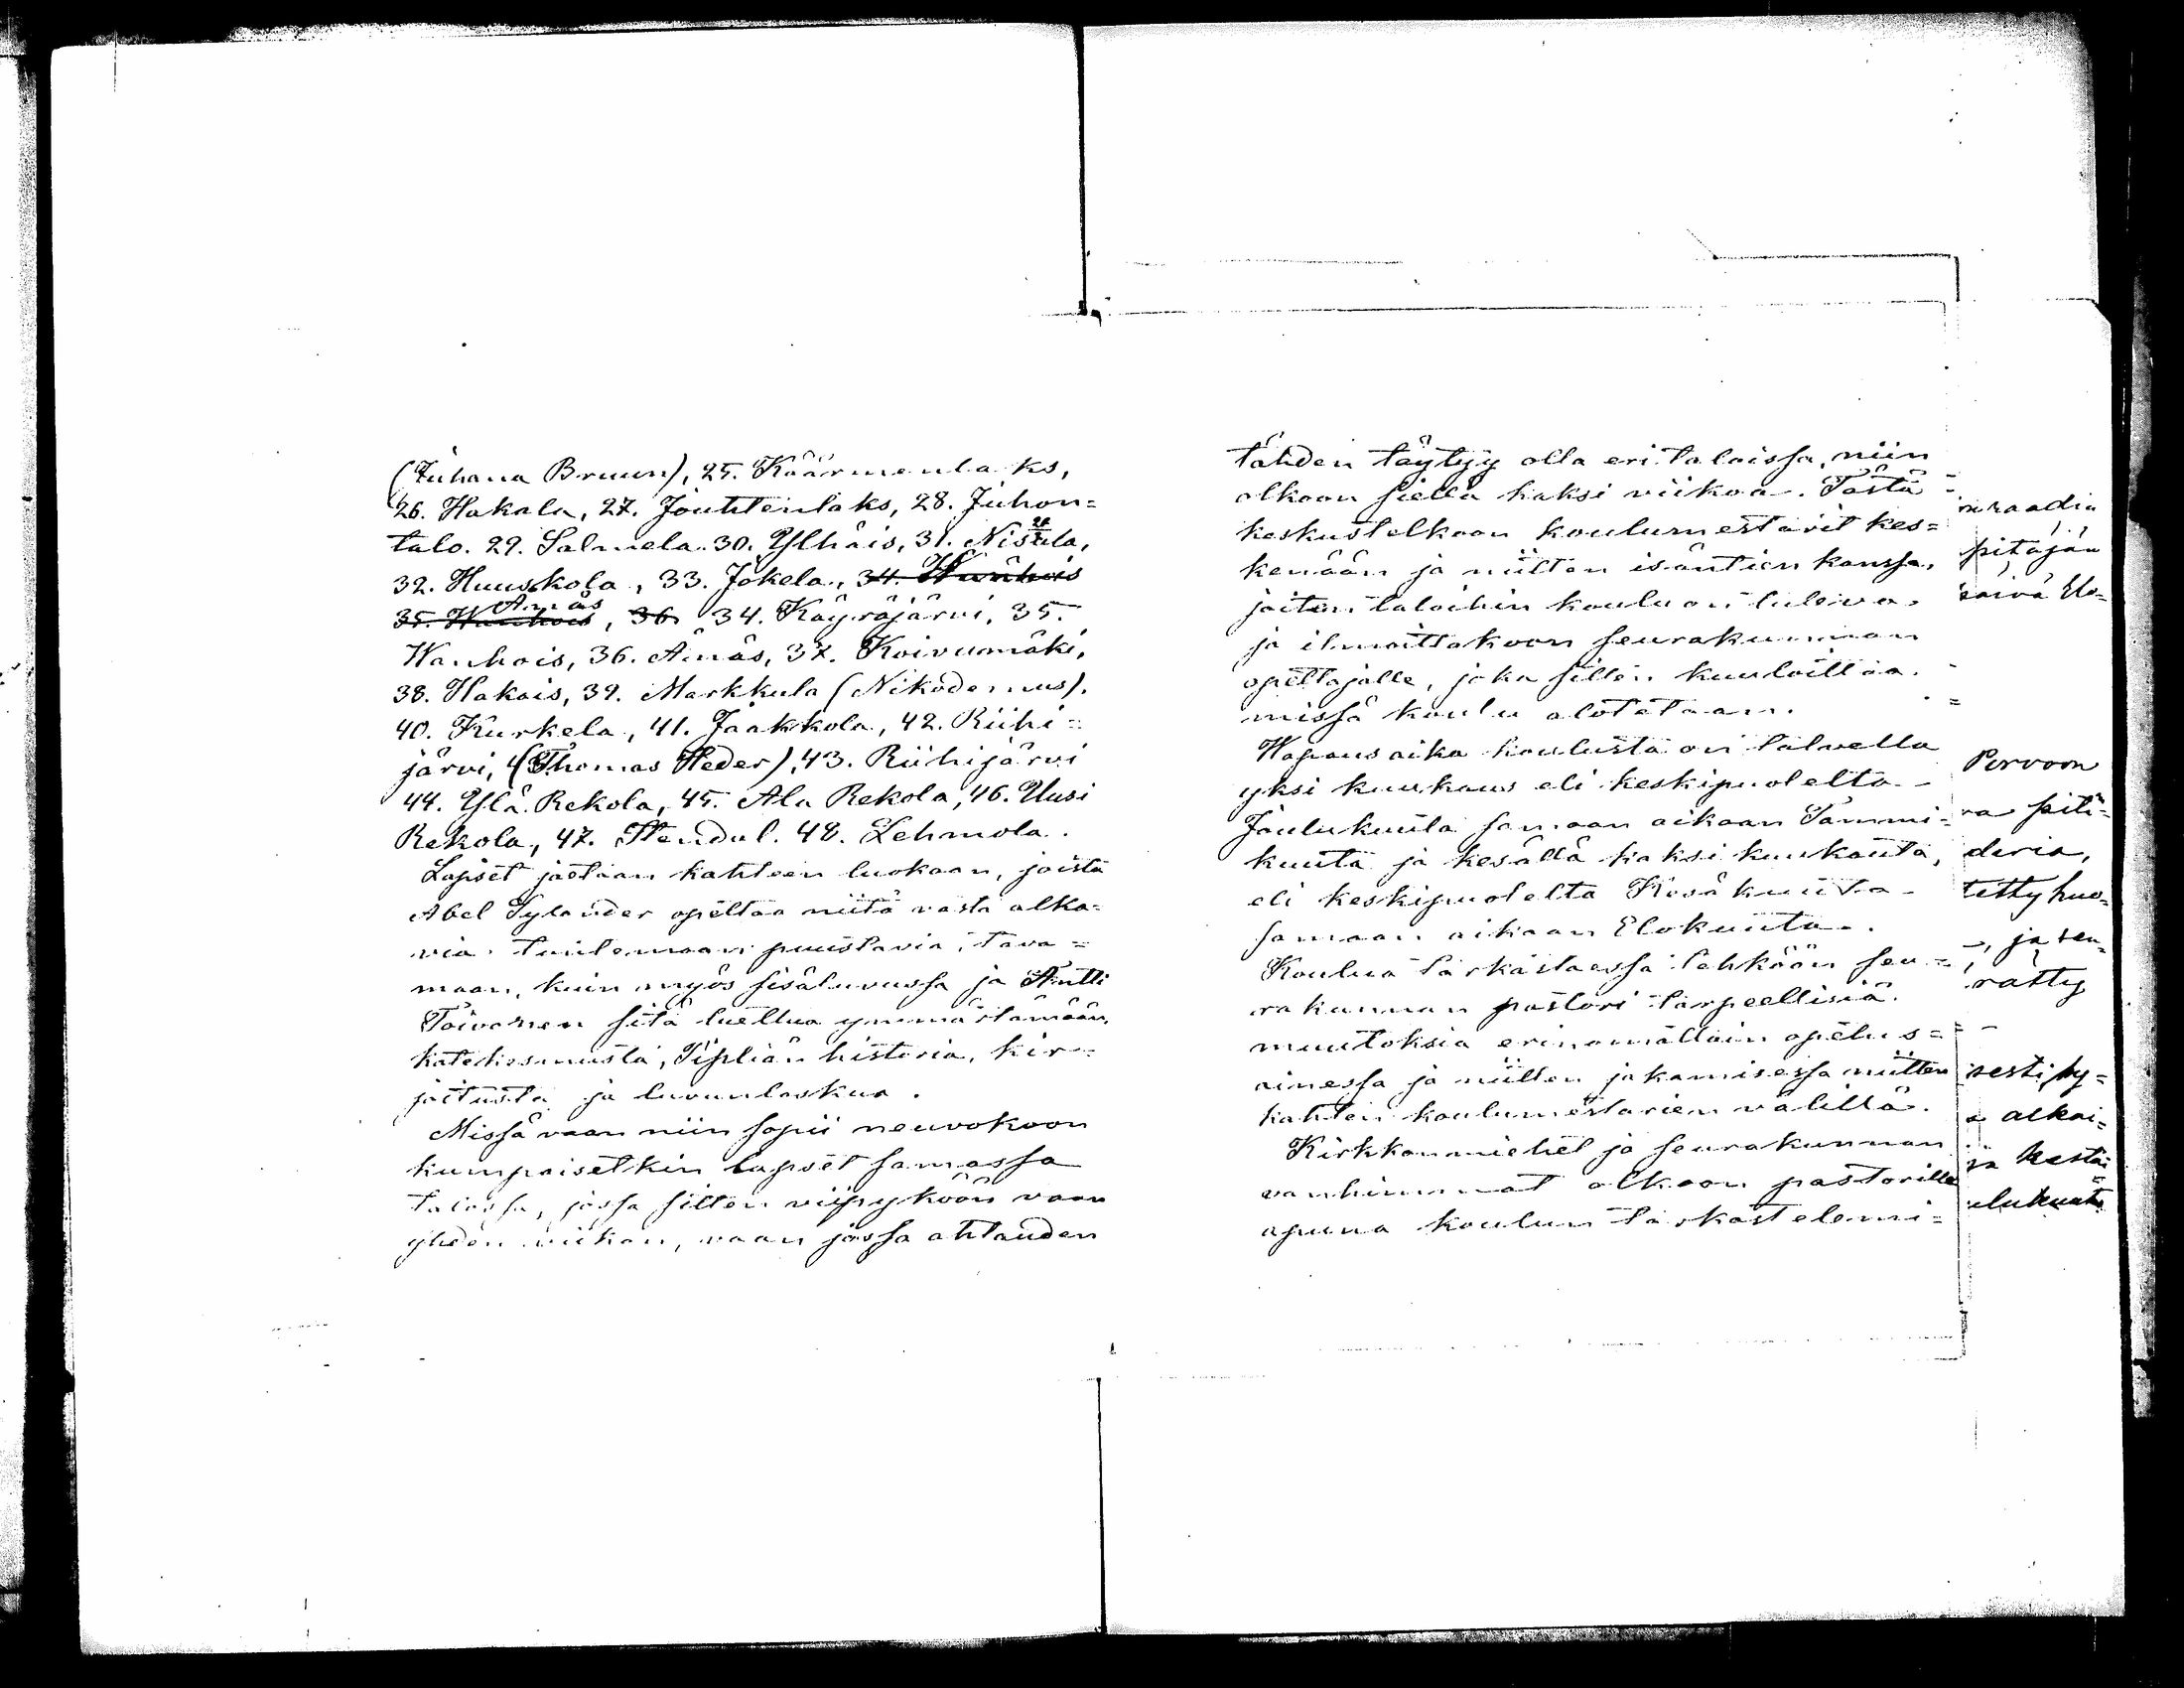 (Juhana Bruun), 25. Käärmenlaks,
26. Hakala, 27. Jouhtenlaks, 28. Juhon=
talo. 29. Salmela. 30. Ylhäis, 31. Nisula,
32. Huuskola, 33. Jokela, 34. Wanhois
35. Wanhois Ämäs, 36 34. Käyräjärvi, 35.
Wanhois, 36. Ämäs, 37. Koivumäki,
38. Hakois, 39. Markkula (Nikodemus),
40. Kurkela, 41. Jaakkola, 42. Riihi=
järvi, (Thomas Heder), 43. Riihijärvi
44. Ylä Rekola, 45. Ala Rekola, 46. Uusi
Rekola, 47. Stendal. 48. Lehmola.
Lapset jaetaan kahteen luokaan, joista
Abel Sylander opettaa niitä vasta alka=
via tuntemaan puustavia, tava=
maan, kuin myös sisäluvussa ja Antti
Toivonen sitä luettua ymmärtämään,
katekesmusta, Piplian historia, kir=
joitusta ja luvunlaskua.
Missä vaan niin sopii neuvokoon
kumpaisetkin lapset samassa
talossa, jossa sitten viipyköön vaan
yhden viikon, vaan jossa ahtauden
tähden täytyy olla eri taloissa, niin
olkoon siellä kaksi viikoa. Tästä
keskustelkoon koulumestarit kes=
kenään ja niitten isäntien kanssa,
joiten taloihin koulu on tuleva,
ja ilmoittakoon seurakunnan
opettajalle, joka sitten kuuloittaa,
missä koulu alotetaan.
Wapaus aika koulusta on talvella
yksi kuukaus eli keskipuolelta
Joulukuuta samaan aikaan Tammi=
kuuta ja kesällä kaksi kuukautta,
eli keskipuolelta Kesäkuuta
samaan aikaan Elokuuta.
Koulua tarkastaessa tehköön seu=
rakunnan pastori tarpeellisiä
muutoksia erinomattain opetus=
ainessa ja niitten jakamisessa niitten
kahten koulumestarien välillä.
Kirkkonmiehet ja seurakunnan
vanhimmat olkoon pastorille
apuna koulun tarkastelemi=
mraadin
pitäjän
päivä Elo=
Porvoon
ra piti=
deria,
tetty huo=
, ja seu=
rattu
sesti py=
a alkai=
ja kestäi
ulukuuta